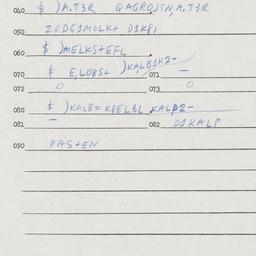 040 $ )A.T3R GAGROJSN,A.T3R
050 ZODG1MOLK+ D1KPI
060 $ )MELKS+EFL
070 $ E,LO8S+ )KALB1K2- 071 -
072 0 073 0
080 $ )KALB= KPELBL KALP2-
081 - 082 D1KALP
090 PAS+EN